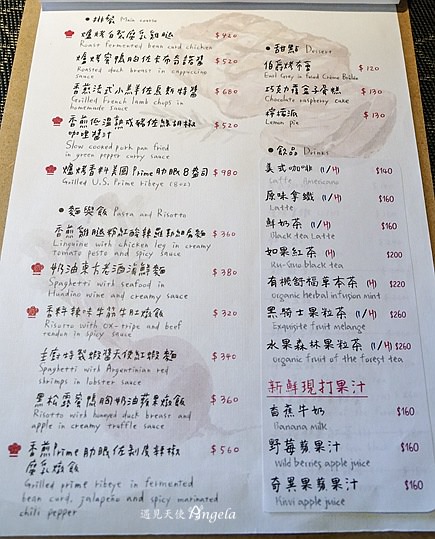 • 排餐 Main course
爐烤白製腐乳雞腿 $420
Roast fermented bean curd chicken
爐烤蜜鴨胸佐卡布奇諾醬 $520
Roasted duck breast in cappuccino sauce
香煎法式小羊佐 特醬 $680
Grilled French lamb chops in homemade sauce
香煎低溫熟成豬佐綠胡椒咖哩醬汁 $520
Slow cooked pork pan fried
in green pepper curry sauce
爐烤香料美國Prime肋眼8盎司 $980
Grilled U.S. Prime ribeye (8oz)
• 麵與飯 Pasta and Risotto
香煎雞腿粉紅酸辣羅勒細扁麵 $360
Linguine with chicken leg in creamy
tomato pesto and spicy sauce
奶油東方老酒海鮮麵 $380
Spaghetti with seafood in
Hundino wine and creamy sauce
香料辣味牛筋牛肚燉飯 $320
Risotto with ox-tripe and beef
tendon in spicy sauce
主廚特製蝦醬天使紅蝦麵 $390
Spaghetti with Argentinian red
shrimps in lobster sauce
黑松露蜜鴨胸奶油蘋果燉飯 $360
Risotto with honeyed duck breast and
apple in creamy truffle sauce
香煎Prime肋眼佐剝皮辣椒
腐乳燉飯 $560
Grilled prime ribeye in fermented
bean curd, jalapeño and spicy marinated
chili pepper
• 甜點 Dessert
伯爵烤布蕾 $120
Earl Grey in fused Crème Brûlée
巧克力覆盆子蛋糕 $130
Chocolate raspberry cake
檸檬派 $130
Lemon pie
• 飲品 Drinks
美式咖啡 (I/H) $140
Caffè Americano
原味拿鐵 (I/H) $160
Latte
鮮奶茶 (I/H) $160
Black tea Latte
如果紅茶 (H) $200
Ru-Guo black tea
有機舒福草本茶 (H) $220
organic herbal infusion mint
黑騎士果粒茶 (I/H) $260
Exquisite fruit melange
水果森林果粒茶 (I/H) $260
organic fruit of the forest tea
新鮮現打果汁
香蕉牛奶 $160
Banana milk
野莓蘋果汁 $160
Wild berries apple juice
奇異果蘋果汁 $160
Kiwi apple juice
遇見天使 Angela